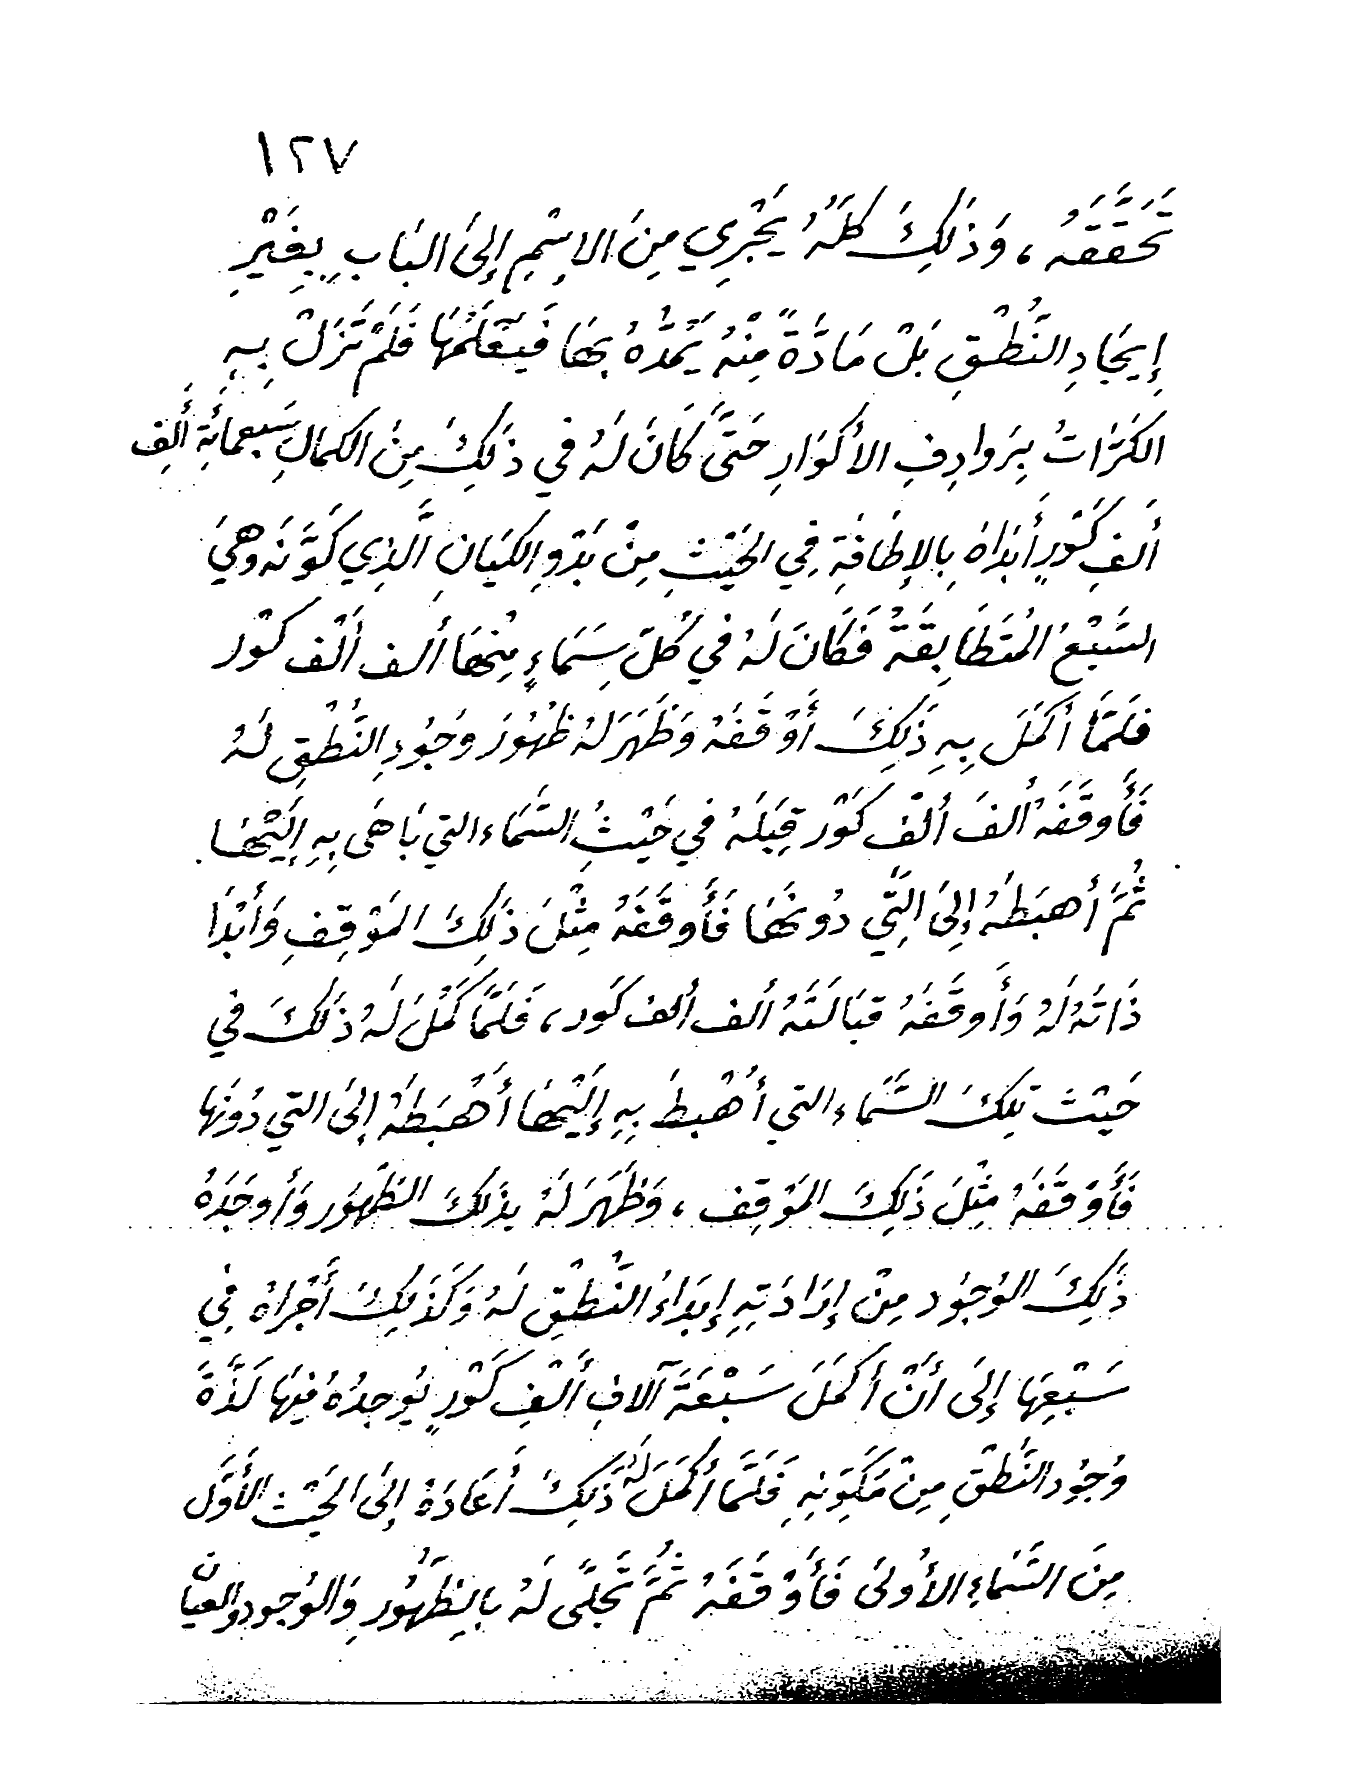 ١٢٧
تَحَقَّقَهُ ، وَذَلِكَ كُلَّهُ يَجْرِي مِنَ الاِسْمِ إِلىَ البَابِ بِغَيْرِ
إِيجَادِ النُّطْقِ بَلْ مَادَّةً مِنْهُ يَمُدُّهُ بِهَا فَيَتَعَلَّمُهَا فَلَمْ تَزَلْ بِهِ
الكَرَّاتُ بِرَوادِفِ الأكْوَارِ حَتَّى كَانَ لَهُ في ذَلِكَ مِنَ الكمالِ سَبعمائَةِ أَلْفِ
أَلفِ كَوْرٍ أَبْدَاهُ بِالإِطَافَةِ فِي الحَيْثِ مِنْ بَدْوِ الكَيَانِ الَّذِي كَوَّنَهُ وَهيَ
السَّبْعُ المُتَطَابِقَةُ فَكَانَ لَهُ في كُلِّ سَمَاءٍ مِنْهَا أَلف أَلْف كَوْر
فَلَمَّا أَكْمَلَ بِهِ ذَلِكَ أَوْقَفَهُ وَظَهَرَ لَهُ ظُهُورَ وُجُودِ النُّطْقِ لَهُ
فَأَوقَفَهُ أَلفَ أَلْف كَوْر قِبَلَهُ في حَيْثُ السَّمَاء التي بَاهَى بِهِ إِلَيْهَا
ثُمَّ أَهبَطَهُ إِلىَ الَّتِي دُونَهَا فَأَوقَفَهُ مِثْلَ ذَلِكَ المَوْقِفِ وَأَبْدَا
ذَاتَهُ لَهُ وَأَوقَفَهُ قبَالَتَهُ ألف ألف كَور ، فَلَمَّا كَمُلَ لَهُ ذَلكَ في
حَيْثَ تِلكَ السَّمَاء التي أَهْبطَ بِهِ إِلَيْهَا أَهْبَطَهُ إِلىَ التي دُونَها
فَأَوْقَفَهُ مِثْلَ ذَلِكَ المَوْقِف ، وَظَهَرَ لَهُ بذَلكَ الظُهور وَأَوجَدَهُ
ذَلِكَ الوُجُود مِنْ إِرَادَتِهِ إِبْدَاءَ النُّطْقِ لَهُ وَكَذَلِكَ أَجْرَاهُ فِي
سَبْعِهَا إِلىَ أَنْ أَكْمَلَ سَبْعَةَ آلافِ أَلْفِ كَوْرٍ يُوجِدُهُ فِيهَا لَذَّةَ
وُجُودِ النُّطْقِ مِنْ مُكَوِّنِهِ فَلَمَّا أَكْمَلَ لَهُ ذَلِكَ أَعَادَهُ إِلىَ الحَيْثِ الأَوَّلِ
مِنَ السَّمَاءِ الأُولىَ فَأَوْقَفَهُ ثُمَّ تَجَلَّى لَهُ بالظُّهُورِ وَالوُجودِ والعيَان